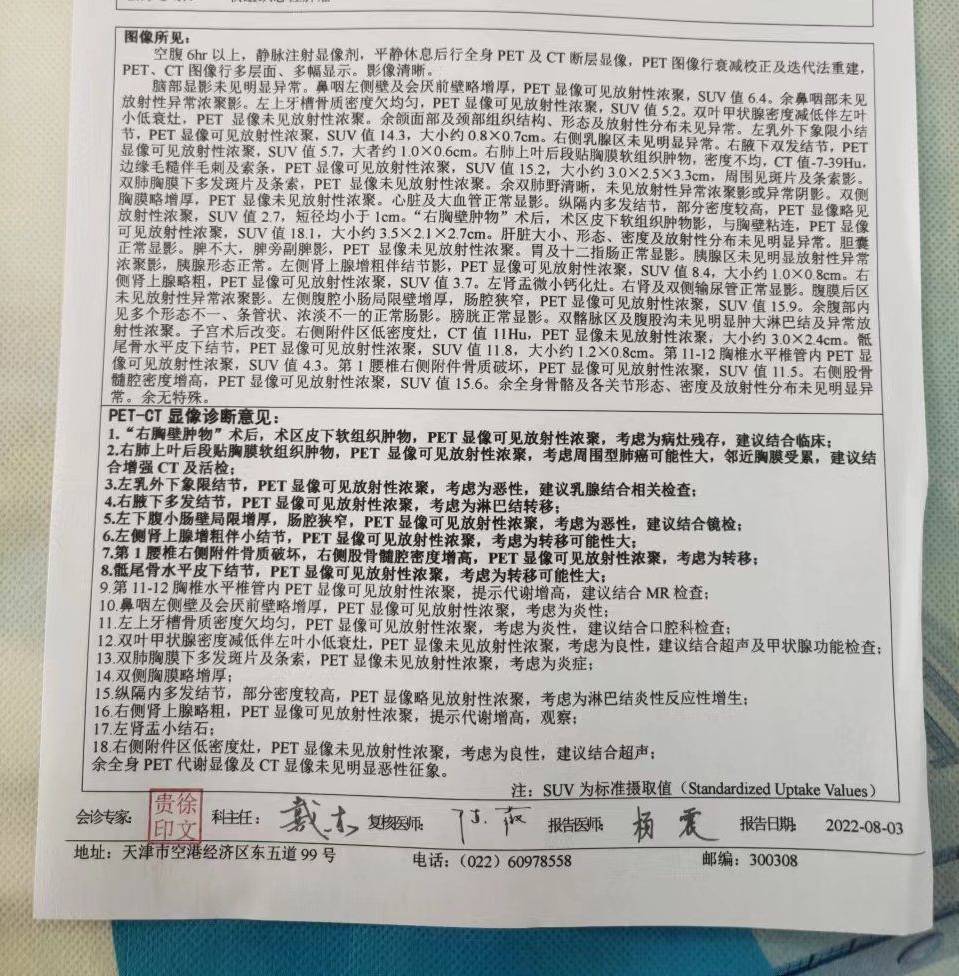 图像所见：
空腹 6hr 以上，静脉注射显像剂，平静休息后行全身 PET 及 CT 断层显像，PET 图像行衰减校正及迭代法重建，
PET、CT 图像行多层面、多幅显示。影像清晰。
脑部显影未见明显异常。鼻咽左侧壁及会厌前壁略增厚，PET 显像可见放射性浓聚，SUV 值 6.4。余鼻咽部未见
放射性异常浓聚影。左上牙槽骨质密度欠均匀，PET 显像可见放射性浓聚，SUV 值 5.2。双叶甲状腺密度减低伴左叶
小低衰灶，PET 显像未见放射性浓聚。余颌面部及颈部组织结构、形态及放射性分布未见异常。左乳外下象限小结
节，PET 显像可见放射性浓聚，SUV 值 14.3，大小约 0.8×0.7cm。右侧乳腺区未见明显异常。右腋下双发结节，PET
显像可见放射性浓聚，SUV 值 5.7，大者约 1.0×0.6cm。右肺上叶后段贴胸膜软组织肿物，密度不均，CT 值-7-39Hu，
边缘毛糙伴毛刺及索条，PET 显像可见放射性浓聚，SUV 值 15.2，大小约 3.0×2.5×3.3cm，周围见斑片及条索影。
双肺胸膜下多发斑片及条索，PET 显像未见放射性浓聚。余双肺野清晰，未见放射性异常浓聚影或异常阴影。双侧
胸膜略增厚，PET 显像未见放射性浓聚。心脏及大血管正常显影。纵隔内多发结节，部分密度较高，PET 显像略见
放射性浓聚，SUV 值 2.7，短径均小于 1cm。“右胸壁肿物”术后，术区皮下软组织肿物影，与胸壁粘连，PET 显像
可见放射性浓聚，SUV 值 18.1，大小约 3.5×2.1×2.7cm。肝脏大小、形态、密度及放射性分布未见明显异常。胆囊
正常显影。脾不大，脾旁副脾影，PET 显像未见放射性浓聚。胃及十二指肠正常显影。胰腺区未见明显放射性异常
浓聚影，胰腺形态正常。左侧肾上腺增粗伴结节影，PET 显像可见放射性浓聚，SUV 值 8.4，大小约 1.0×0.8cm。右
侧肾上腺略粗，PET 显像可见放射性浓聚，SUV 值 3.7。左肾盂微小钙化灶。右肾及双侧输尿管正常显影。腹膜后区
未见放射性异常浓聚影。左侧腹腔小肠局限壁增厚，肠腔狭窄，PET 显像可见放射性浓聚，SUV 值 15.9。余腹部内
见多个形态不一、条管状、浓淡不一的正常肠影。膀胱正常显影。双髂脉区及腹股沟未见明显肿大淋巴结及异常放
射性浓聚。子宫术后改变。右侧附件区低密度灶，CT 值 11Hu，PET 显像未见放射性浓聚，大小约 3.0×2.4cm。骶
尾骨水平皮下结节，PET 显像可见放射性浓聚，SUV 值 11.8，大小约 1.2×0.8cm。第 11-12 胸椎水平椎管内 PET 显
像可见放射性浓聚，SUV 值 4.3。第 1 腰椎右侧附件骨质破坏，PET 显像可见放射性浓聚，SUV 值 11.5。右侧股骨
髓腔密度增高，PET 显像可见放射性浓聚，SUV 值 15.6。余全身骨骼及各关节形态、密度及放射性分布未见明显异
常。余无特殊。
PET-CT 显像诊断意见：
1.“右胸壁肿物”术后，术区皮下软组织肿物，PET 显像可见放射性浓聚，考虑为病灶残存，建议结合临床；
2.右肺上叶后段贴胸膜软组织肿物，PET 显像可见放射性浓聚，考虑周围型肺癌可能性大，邻近胸膜受累，建议结
合增强 CT 及活检；
3.左乳外下象限结节，PET 显像可见放射性浓聚，考虑为恶性，建议乳腺结合相关检查；
4.右腋下多发结节，PET 显像可见放射性浓聚，考虑为淋巴结转移；
5.左下腹小肠壁局限增厚，肠腔狭窄，PET 显像可见放射性浓聚，考虑为恶性，建议结合镜检；
6.左侧肾上腺增粗伴小结节，PET 显像可见放射性浓聚，考虑为转移可能性大；
7.第 1 腰椎右侧附件骨质破坏，右侧股骨髓腔密度增高，PET 显像可见放射性浓聚，考虑为转移；
8.骶尾骨水平皮下结节，PET 显像可见放射性浓聚，考虑为转移可能性大；
9.第 11-12 胸椎水平椎管内 PET 显像可见放射性浓聚，提示代谢增高，建议结合 MR 检查；
10.鼻咽左侧壁及会厌前壁略增厚，PET 显像可见放射性浓聚，考虑为炎性；
11.左上牙槽骨质密度欠均匀，PET 显像可见放射性浓聚，考虑为炎性，建议结合口腔科检查；
12.双叶甲状腺密度减低伴左叶小低衰灶，PET 显像未见放射性浓聚，考虑为良性，建议结合超声及甲状腺功能检查；
13.双肺胸膜下多发斑片及条索，PET 显像未见放射性浓聚，考虑为炎症；
14.双侧胸膜略增厚；
15.纵隔内多发结节，部分密度较高，PET 显像略见放射性浓聚，考虑为淋巴结炎性反应性增生；
16.右侧肾上腺略粗，PET 显像可见放射性浓聚，提示代谢增高，观察；
17.左肾盂小结石；
18.右侧附件区低密度灶，PET 显像未见放射性浓聚，考虑为良性，建议结合超声；
余全身 PET 代谢显像及 CT 显像未见明显恶性征象。
注：SUV 为标准摄取值（Standardized Uptake Values）
会诊专家： 贵徐印文 科主任： 复核医师： 报告医师： 杨震 报告日期： 2022-08-03
地址：天津市空港经济区东五道 99 号 电话：（022）60978558 邮编：300308